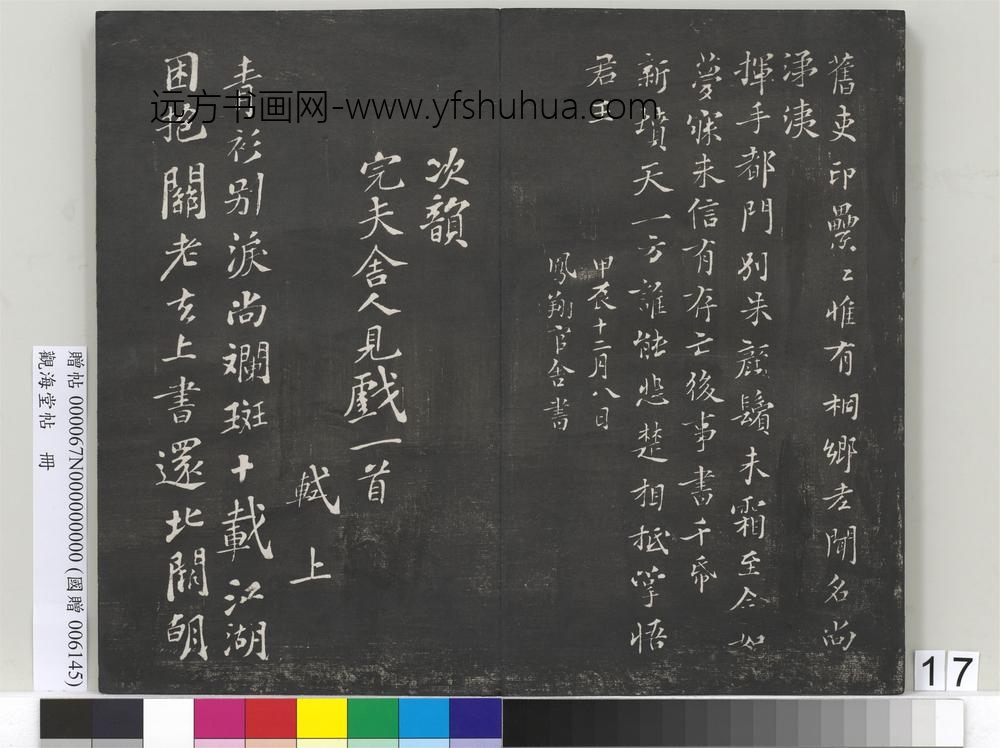 舊吏印纍〻惟有桐鄉老聞名尚
涕洟
揮手都門別朱顏鬢未霜至今如
夢寐未信有存亡後事書千紙
新墳天一方誰能悲楚相抵掌悟
君王
甲辰十二月八日
鳳翔官舍書
次韻
完夫舍人見戲一首
軾上
青衫別淚尚斕斑十載江湖
困抱關老去上書還北闕朝
远方书画网-www.yfshuhua.com
贈帖 000067N000000000 (國贈 006145)
觀海堂帖 冊
17